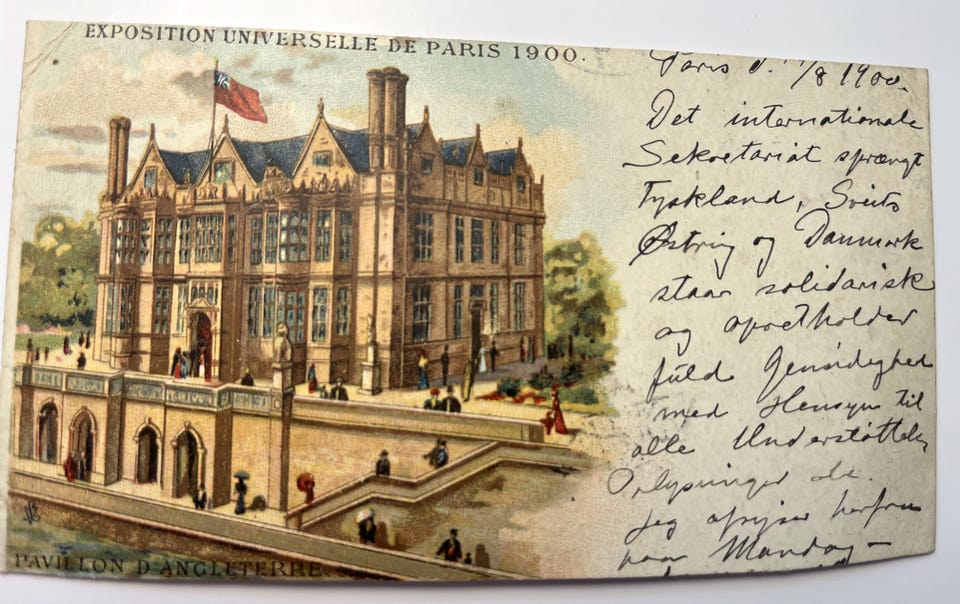 EXPOSITION UNIVERSELLE DE PARIS 1900.
Paris d. 1/8 1900.
Det internationale
Sekretariat sprængt
Tyskland, Sveits
Østrig og Danmark
staar solidarisk
og opretholder
fuld Gensidighed
med Hensyn til
alle Understøttelser
Oplysninger
Jeg afrejser herfra
paa Mandag —
PAVILLON D'ANGLETERRE